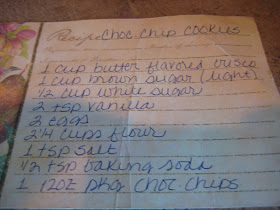 Recipe Choc. Chip Cookies
1 cup butter flavored crisco
1 cup brown sugar (light)
1/2 cup white sugar
2 tsp vanilla
2 eggs
2 1/4 cups flour
1 tsp salt
1/2 tsp baking soda
1 12oz pkg choc. chips